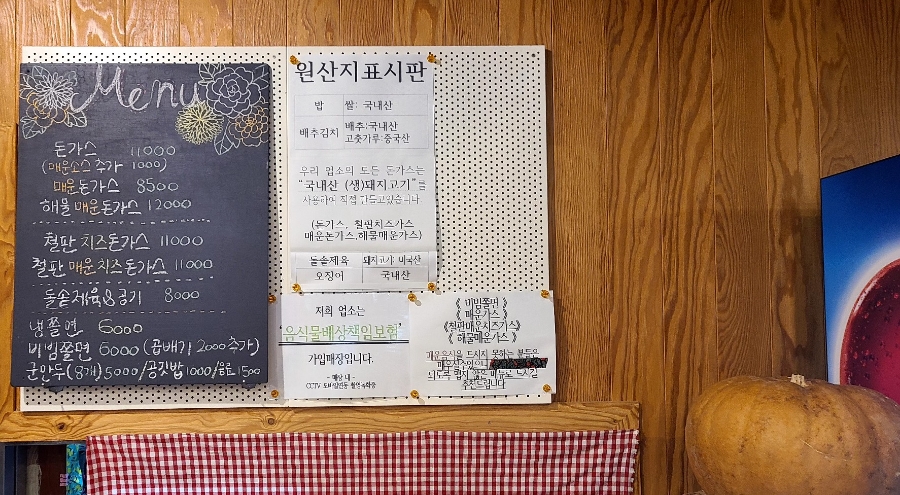 Menu
돈가스 11000
(매운소스 추가 1000)
매운돈가스 8500
해물매운돈가스 12000
철판치즈돈가스 11000
철판매운치즈돈가스 11000
돌솥제육&공기 8000
냉쫄면 6000
비빔쫄면 6000 (곱배기 2000추가)
군만두(8개)5000/공깃밥1000/음료1500
원산지표시판
밥 쌀: 국내산
배추김치 배추:국내산
고춧가루:중국산
우리 업소의 모든 돈가스는
"국내산 (생)돼지고기"를
사용하여 직접 만들고있습니다
(돈가스, 철판치즈가스
매운돈가스,해물매운가스)
돌솥제육 돼지고기: 미국산
오징어 국내산
저희 업소는
'음식물배상책임보험'
가입매장입니다.
- 매장 내 -
CCTV
《 비빔쫄면 》
《 매운가스 》
《철판매운치즈가스》
《 해물매운가스 》
매운음식을 드시지 못하는 분들은
추천드립니다